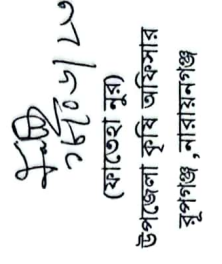 (ফাতেহা নুর)
উপজেলা কৃষি অফিসার
রূপগঞ্জ ,নারায়নগঞ্জ